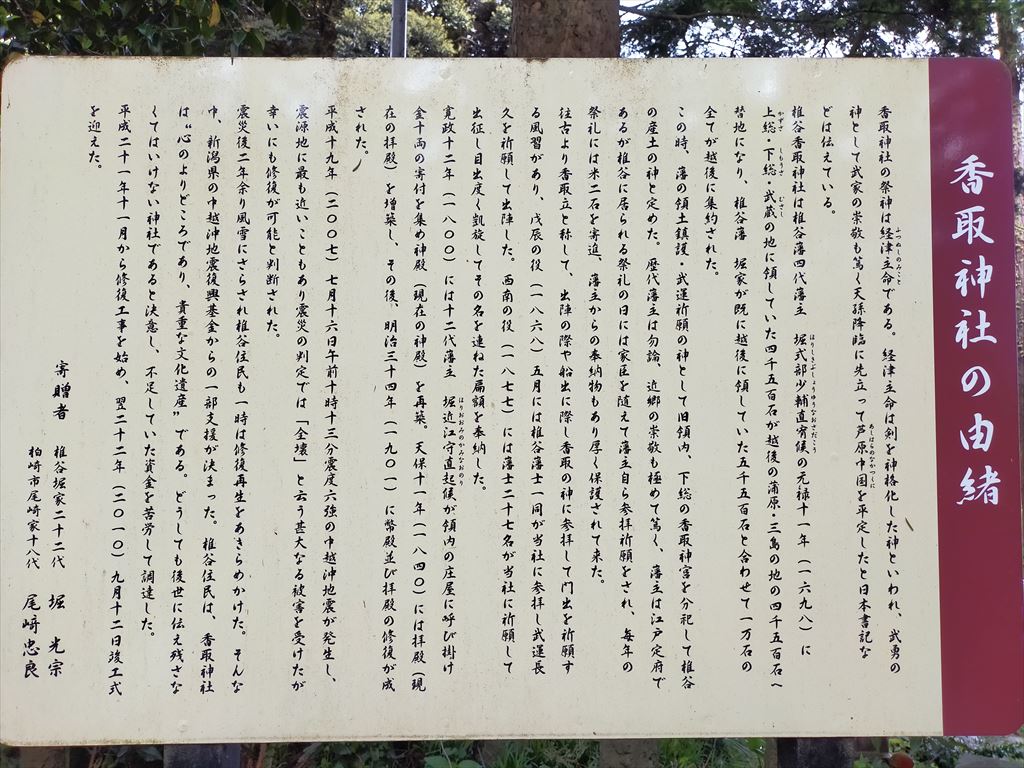 香取神社の由緒
香取神社の祭神は経津主命である。経津主命は剣を神格化した神といわれ、武勇の
ふつぬしのみこと
神として武家の崇敬も篤く天孫降臨に先立って芦原中国を平定したと日本書記な
あしはらのなかつくに
どは伝えている。
椎谷香取神社は椎谷藩四代藩主 堀式部少輔直宥候の元禄十一年（一六九八）に
ほりしきぶしょうゆうなおさだこう
上総・下総・武蔵の地に領していた四千五百石が越後の蒲原・三島の地の四千五百石へ
かずさ しもうさ むさし
替地になり、椎谷藩 堀家が既に越後に領していた五千五百石と合わせて一万石の
全てが越後に集約された。
この時、藩の領土鎮護・武運祈願の神として旧領内、下総の香取神宮を分祀して椎谷
の産土の神と定めた。歴代藩主は勿論、近郷の崇敬も極めて篤く、藩主は江戸定府で
あるが椎谷に居られる祭礼の日には家臣を随えて藩主自ら参拝祈願をされ、毎年の
祭礼には米二石を寄進、藩主からの奉納物もあり厚く保護されて来た。
往古より香取立と称して、出陣の際や船出に際し香取の神に参拝して門出を祈願す
る風習があり、戊辰の役（一八六八）五月には椎谷藩士一同が当社に参拝し武運長
久を祈願して出陣した。西南の役（一八七七）には藩士二十七名が当社に祈願して
出征し目出度く凱旋してその名を連ねた扁額を奉納した。
寛政十二年（一八〇〇）には十二代藩主 堀近江守直起候が領内の庄屋に呼び掛け
ほりおおみのかみなおのり
金十両の寄付を集め神殿（現在の神殿）を再築。天保十一年（一八四〇）には拝殿（現
在の拝殿）を増築し、その後、明治三十四年（一九〇一）に幣殿並び拝殿の修復が成
された。
平成十九年（二〇〇七）七月十六日午前十時十三分震度六強の中越沖地震が発生し、
震源地に最も近いこともあり震災の判定では「全壊」と云う甚大なる被害を受けたが
幸いにも修復が可能と判断された。
震災後二年余り風雪にさらされ椎谷住民も一時は修復再生をあきらめかけた。そんな
中、新潟県の中越沖地震復興基金からの一部支援が決まった。椎谷住民は、香取神社
は“心のよりどころであり、貴重な文化遺産”である。どうしても後世に伝え残さな
くてはいけない神社であると決意し、不足していた資金を苦労して調達した。
平成二十一年十一月から修復工事を始め、翌二十二年（二〇一〇）九月十二日竣工式
を迎えた。
寄贈者 椎谷堀家二十二代 堀 光宗
柏崎市尾崎家十八代 尾崎忠良